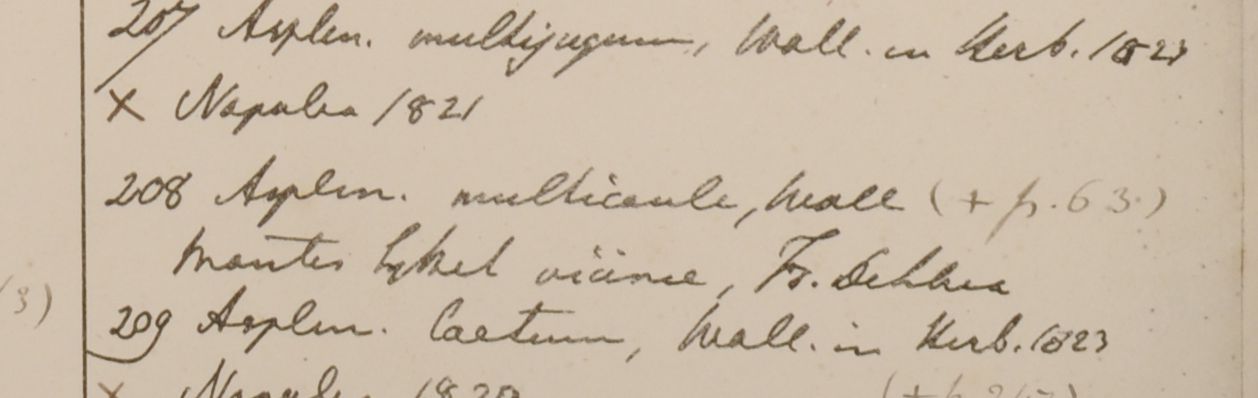 207 Asplen. multijugum, Wall. in Herb. 1823
× Napalia 1821
208 Asplen. multicaule, Wall (+ p. 63.)
Montes Sylhet viciniae, Fr. De Silva
3)
209 Asplen. laetum, Wall. in Herb. 1823
× Napalia 1820 (+ p.